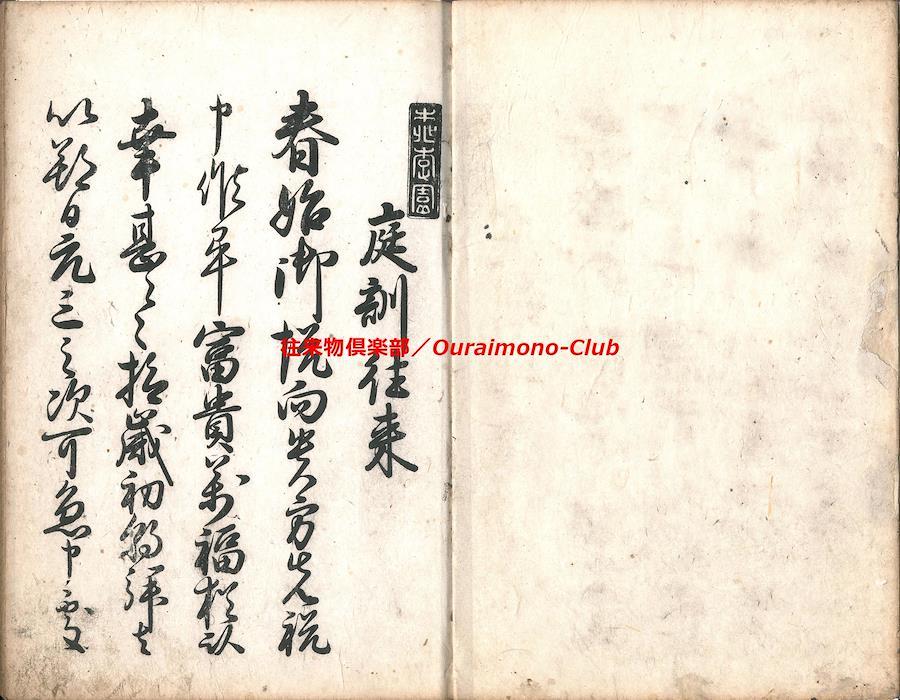 庭訓往来
春始御悦向貴方先祝
申候畢富貴萬福猶以
幸甚々々抑歳初朝拝者
以朔日元三之次可急申處
往来物倶楽部／Ouraimono-Club